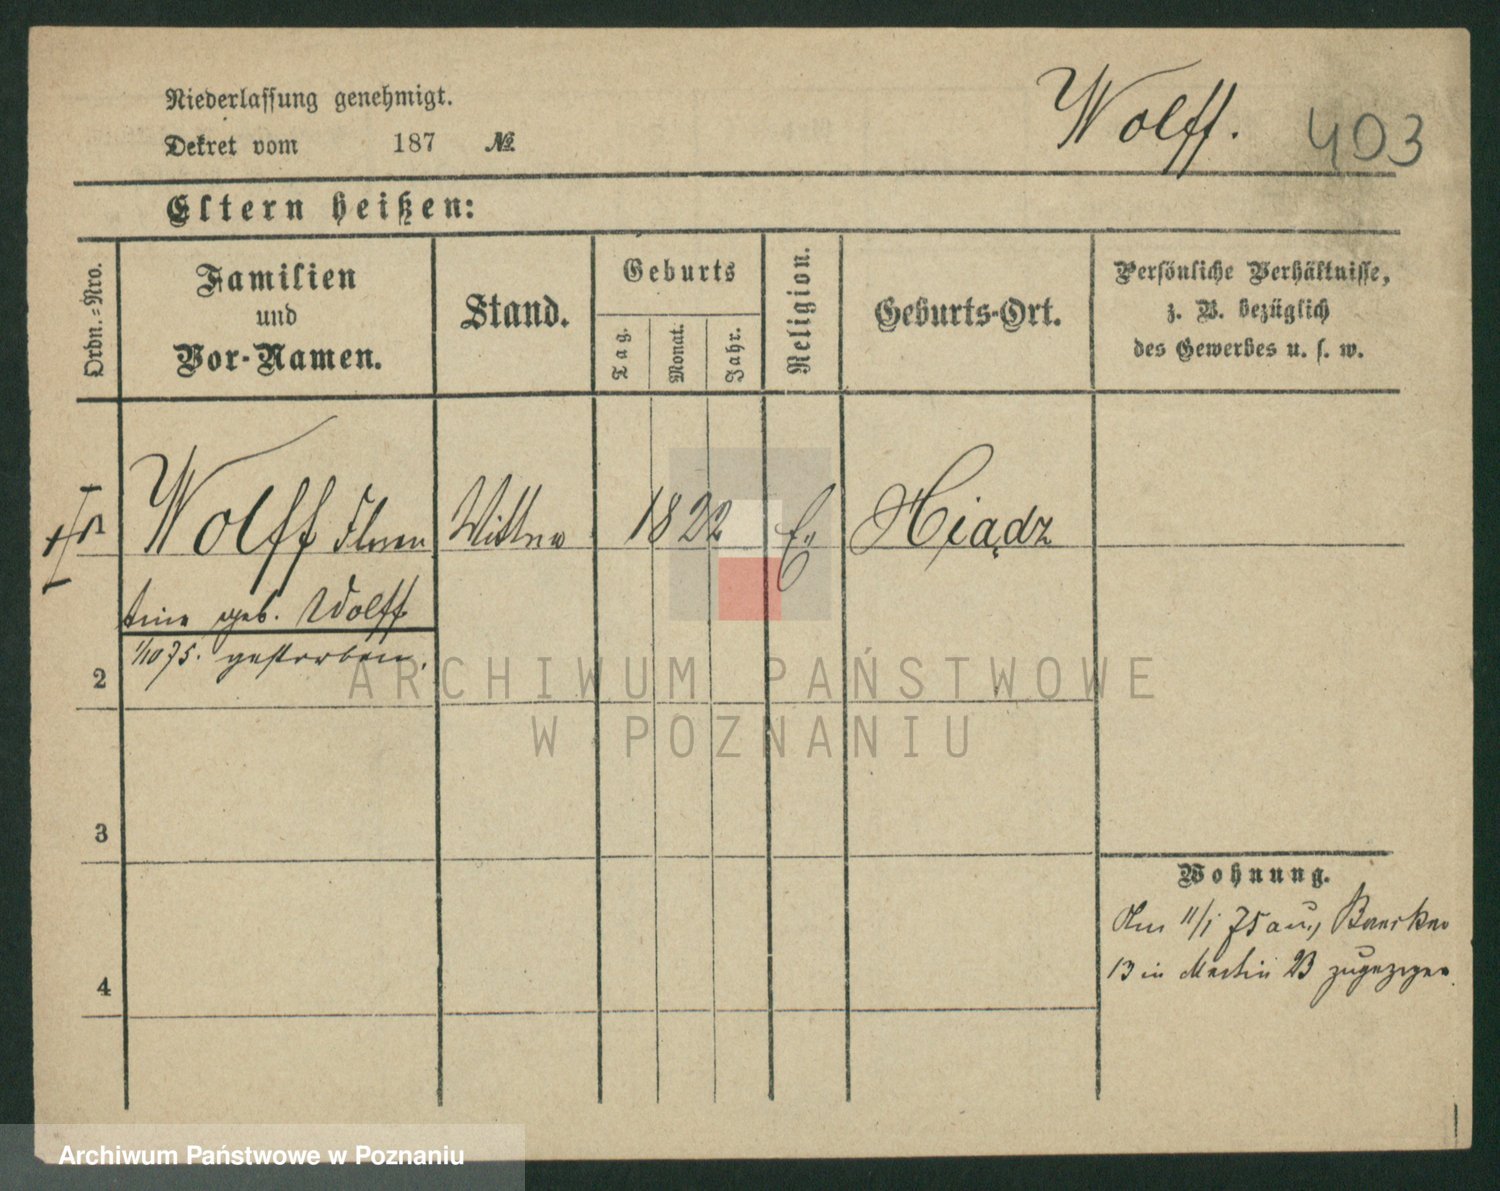 Niederlassung genehmigt.
Dekret vom 187 №
Wolff. 403
Eltern heißen:
Ordn.-Nro.
Familien
und
Vor-Namen.
Stand.
Geburts
Tag.
Monat.
Jahr.
Religion.
Geburts-Ort.
Persönliche Verhältnisse,
z. B. bezüglich
des Gewerbes u. s. w.
1 Wolff Floren Wittwe 1822 Ev
tine geb. Wolff
1/10 75. gestorben.
2
3
4
Wohnung.
11/1 75 aus
13 in Martin 23 zugezogen
ARCHIWUM PAŃSTWOWE
W POZNANIU
Archiwum Państwowe w Poznaniu